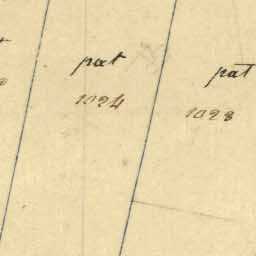 pat
1024
pat
1023